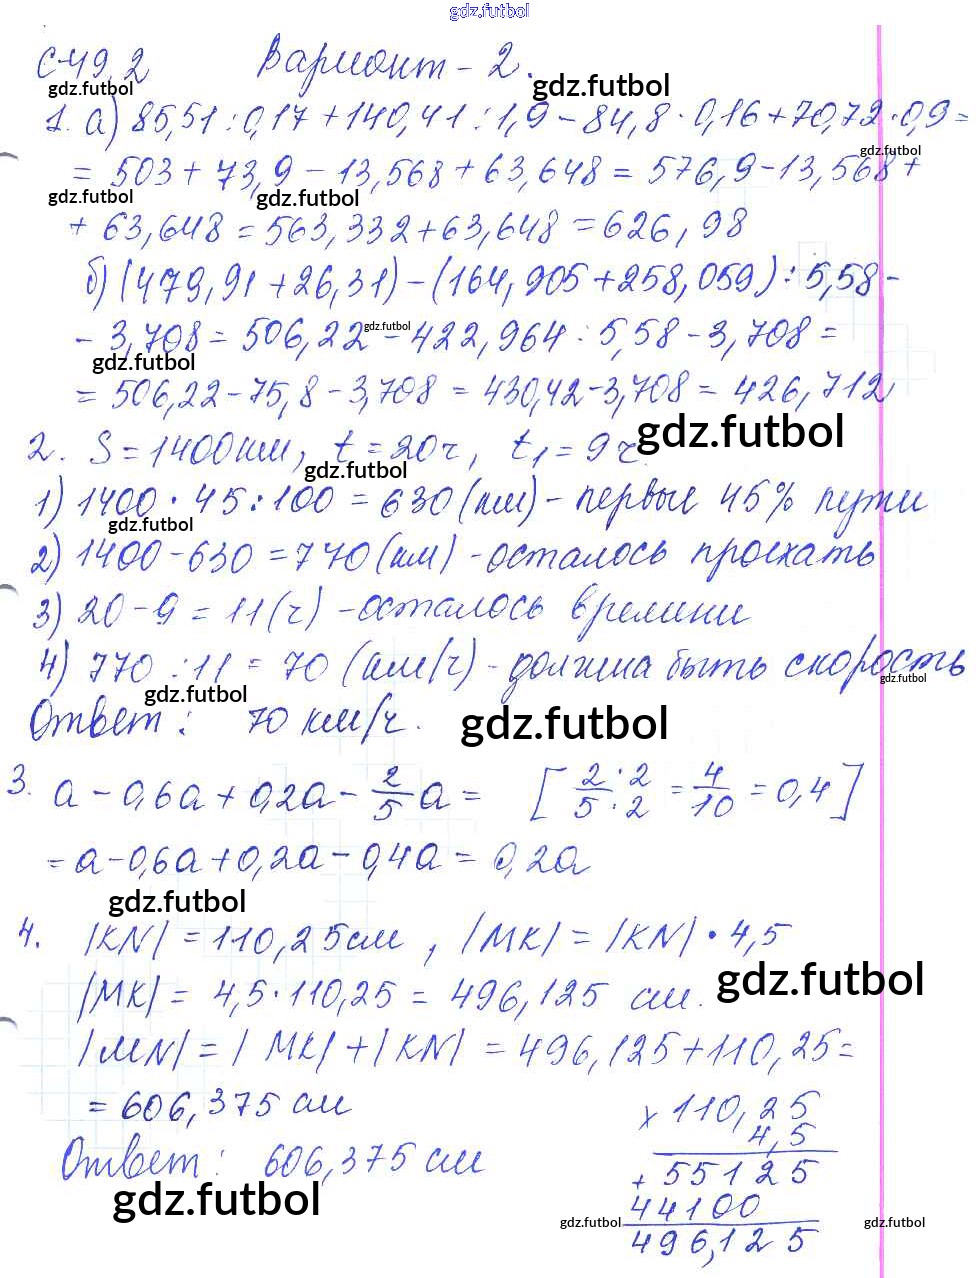 gdz.futbol
С-49.2 Вариант - 2.
gdz.futbol gdz.futbol
1. а) 85,51 : 0,17 + 140,41 : 1,9 - 84,8 · 0,16 + 70,72 · 0,9 =
gdz.futbol
= 503 + 73,9 - 13,568 + 63,648 = 576,9 - 13,568 +
gdz.futbol gdz.futbol
+ 63,648 = 563,332 + 63,648 = 626,98
б) (479,91 + 26,31) - (164,905 + 258,059) : 5,58 -
- 3,708 = 506,22 - 422,964 : 5,58 - 3,708 =
gdz.futbol
gdz.futbol
= 506,22 - 75,8 - 3,708 = 430,42 - 3,708 = 426,712,
gdz.futbol
2. S = 1400 км, t = 20 ч, t₁ = 9 ч.
gdz.futbol
1) 1400 · 45 : 100 = 630 (км) - первые 45% пути
gdz.futbol
2) 1400 - 630 = 770 (км) - осталось проехать
3) 20 - 9 = 11 (ч) - осталось времени
4) 770 : 11 = 70 (км/ч) - должна быть скорость
gdz.futbol gdz.futbol
Ответ: 70 км/ч.
gdz.futbol
3. a - 0,6a + 0,2a - 2/5 a = [2·2/5·2 = 4/10 = 0,4]
= a - 0,6a + 0,2a - 0,4a = 0,2a
gdz.futbol
4. |KN| = 110,25 см, |MK| = |KN| · 4,5
gdz.futbol
|MK| = 4,5 · 110,25 = 496,125 см.
|MN| = |MK| + |KN| = 496,125 + 110,25 =
= 606,375 см
× 110,25
4,5
Ответ: 606,375 см
+ 55125
gdz.futbol
44100
gdz.futbol gdz.futbol
496,125